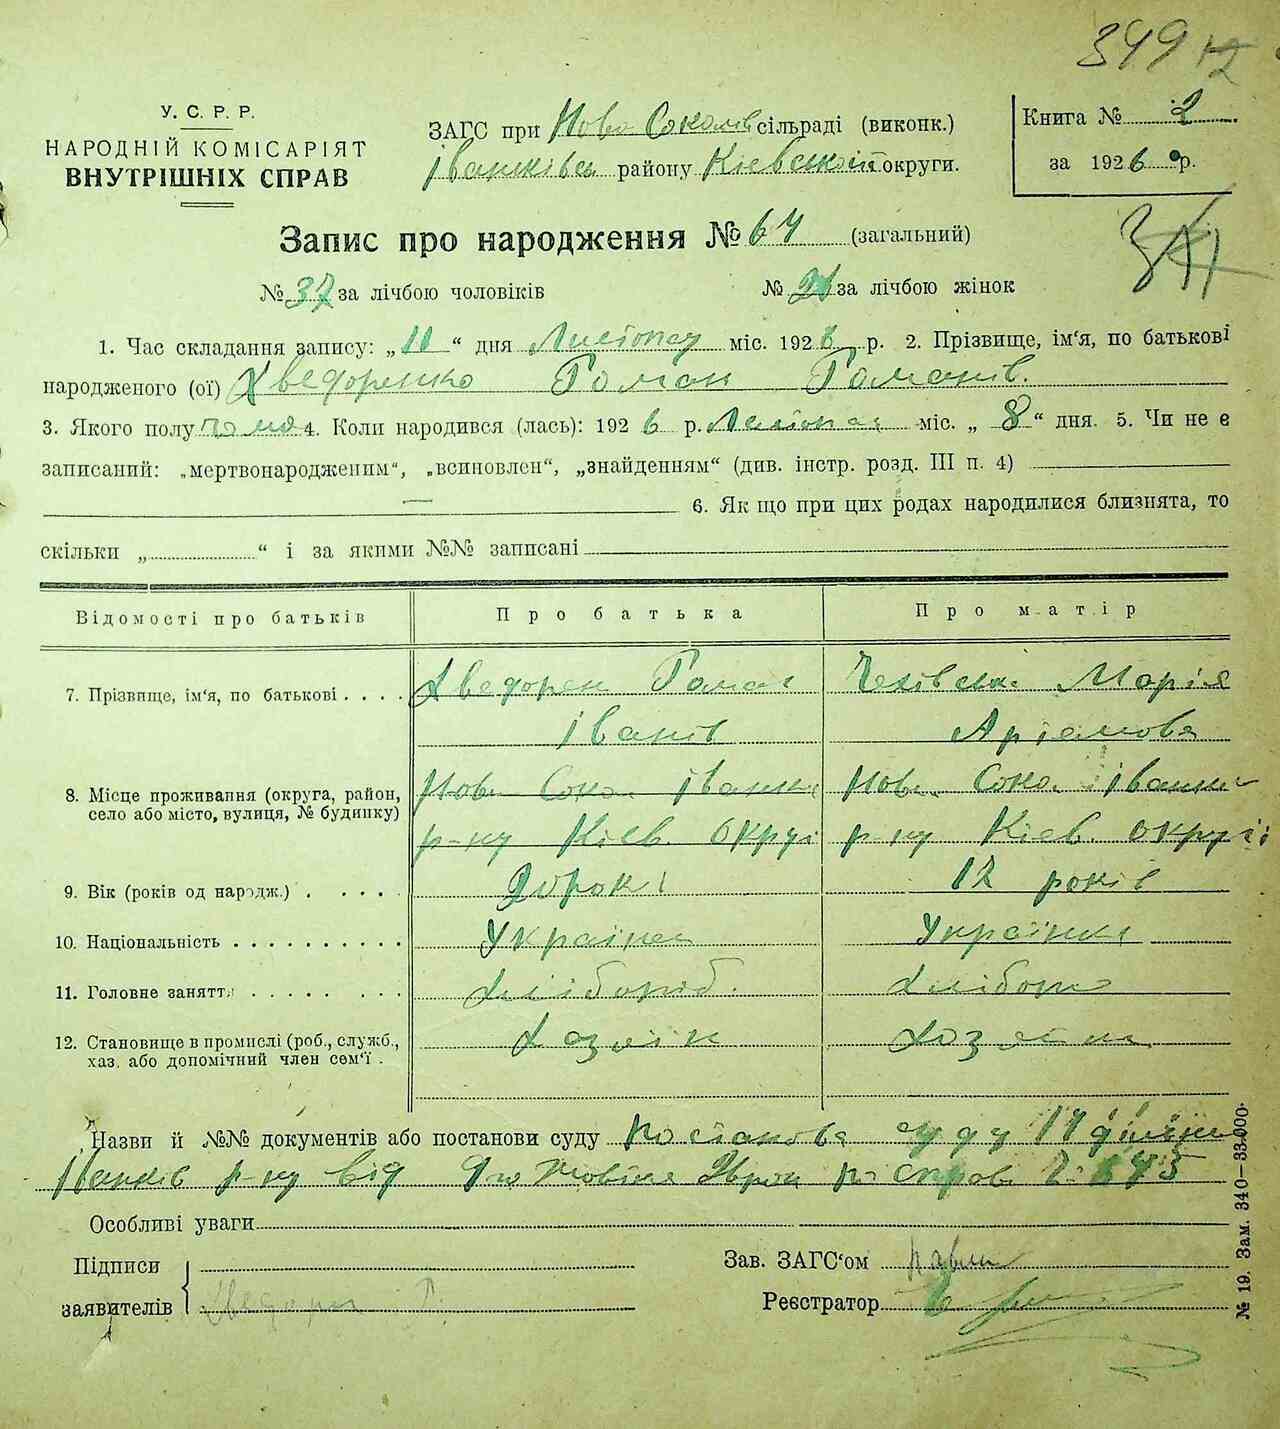 349
У. С. Р. Р.
НАРОДНІЙ КОМІСАРІЯТ
ВНУТРІШНІХ СПРАВ
ЗАГС при Ново Соколів сільраді (виконк.)
Іванків району Київської округи.
Книга № 2
за 1926 р.
Запис про народження № 64 (загальний)
№ 37 за лічбою чоловіків № за лічбою жінок
1. Час складання запису: „11“ дня Листопад міс. 1926 р. 2. Прізвище, ім'я, по батькові
народженого (ої) Хведоренко Роман Романів.
3. Якого полу 4. Коли народився (лась): 1926 р. міс. „8“ дня. 5. Чи не є
записаний: „мертвонародженим“, „всиновлен“, „знайденням“ (див. інстр. розд. III п. 4)
6. Як що при цих родах народилися близнята, то
скільки „ “ і за якими №№ записані
Відомості про батьків Про батька Про матір
7. Прізвище, ім'я, по батькові Хведорен Роман Чехівська Марія
Іванів Артемова
8. Місце проживання (округа, район,
село або місто, вулиця, № будинку)
Нов. Соко. Іванки Нов. Соко. Іванки
р-ну Київ. округі р-ну Київ. округи
9. Вік (років од народж.) років
10. Національність Українец Українка
11. Головне заняття Хлібороб. Хлібороб
12. Становище в промислі (роб., служб.,
хаз. або допомічний член сем'ї .
Хазяїн
Назви й №№ документів або постанови суду Постанова суду 17 дільниці
Іванків р-ну від
Особливі уваги
Підписи
заявителів Хведорен Р.
Зав. ЗАГС'ом
Реєстратор
№ 19. Зам. 340—33.000.